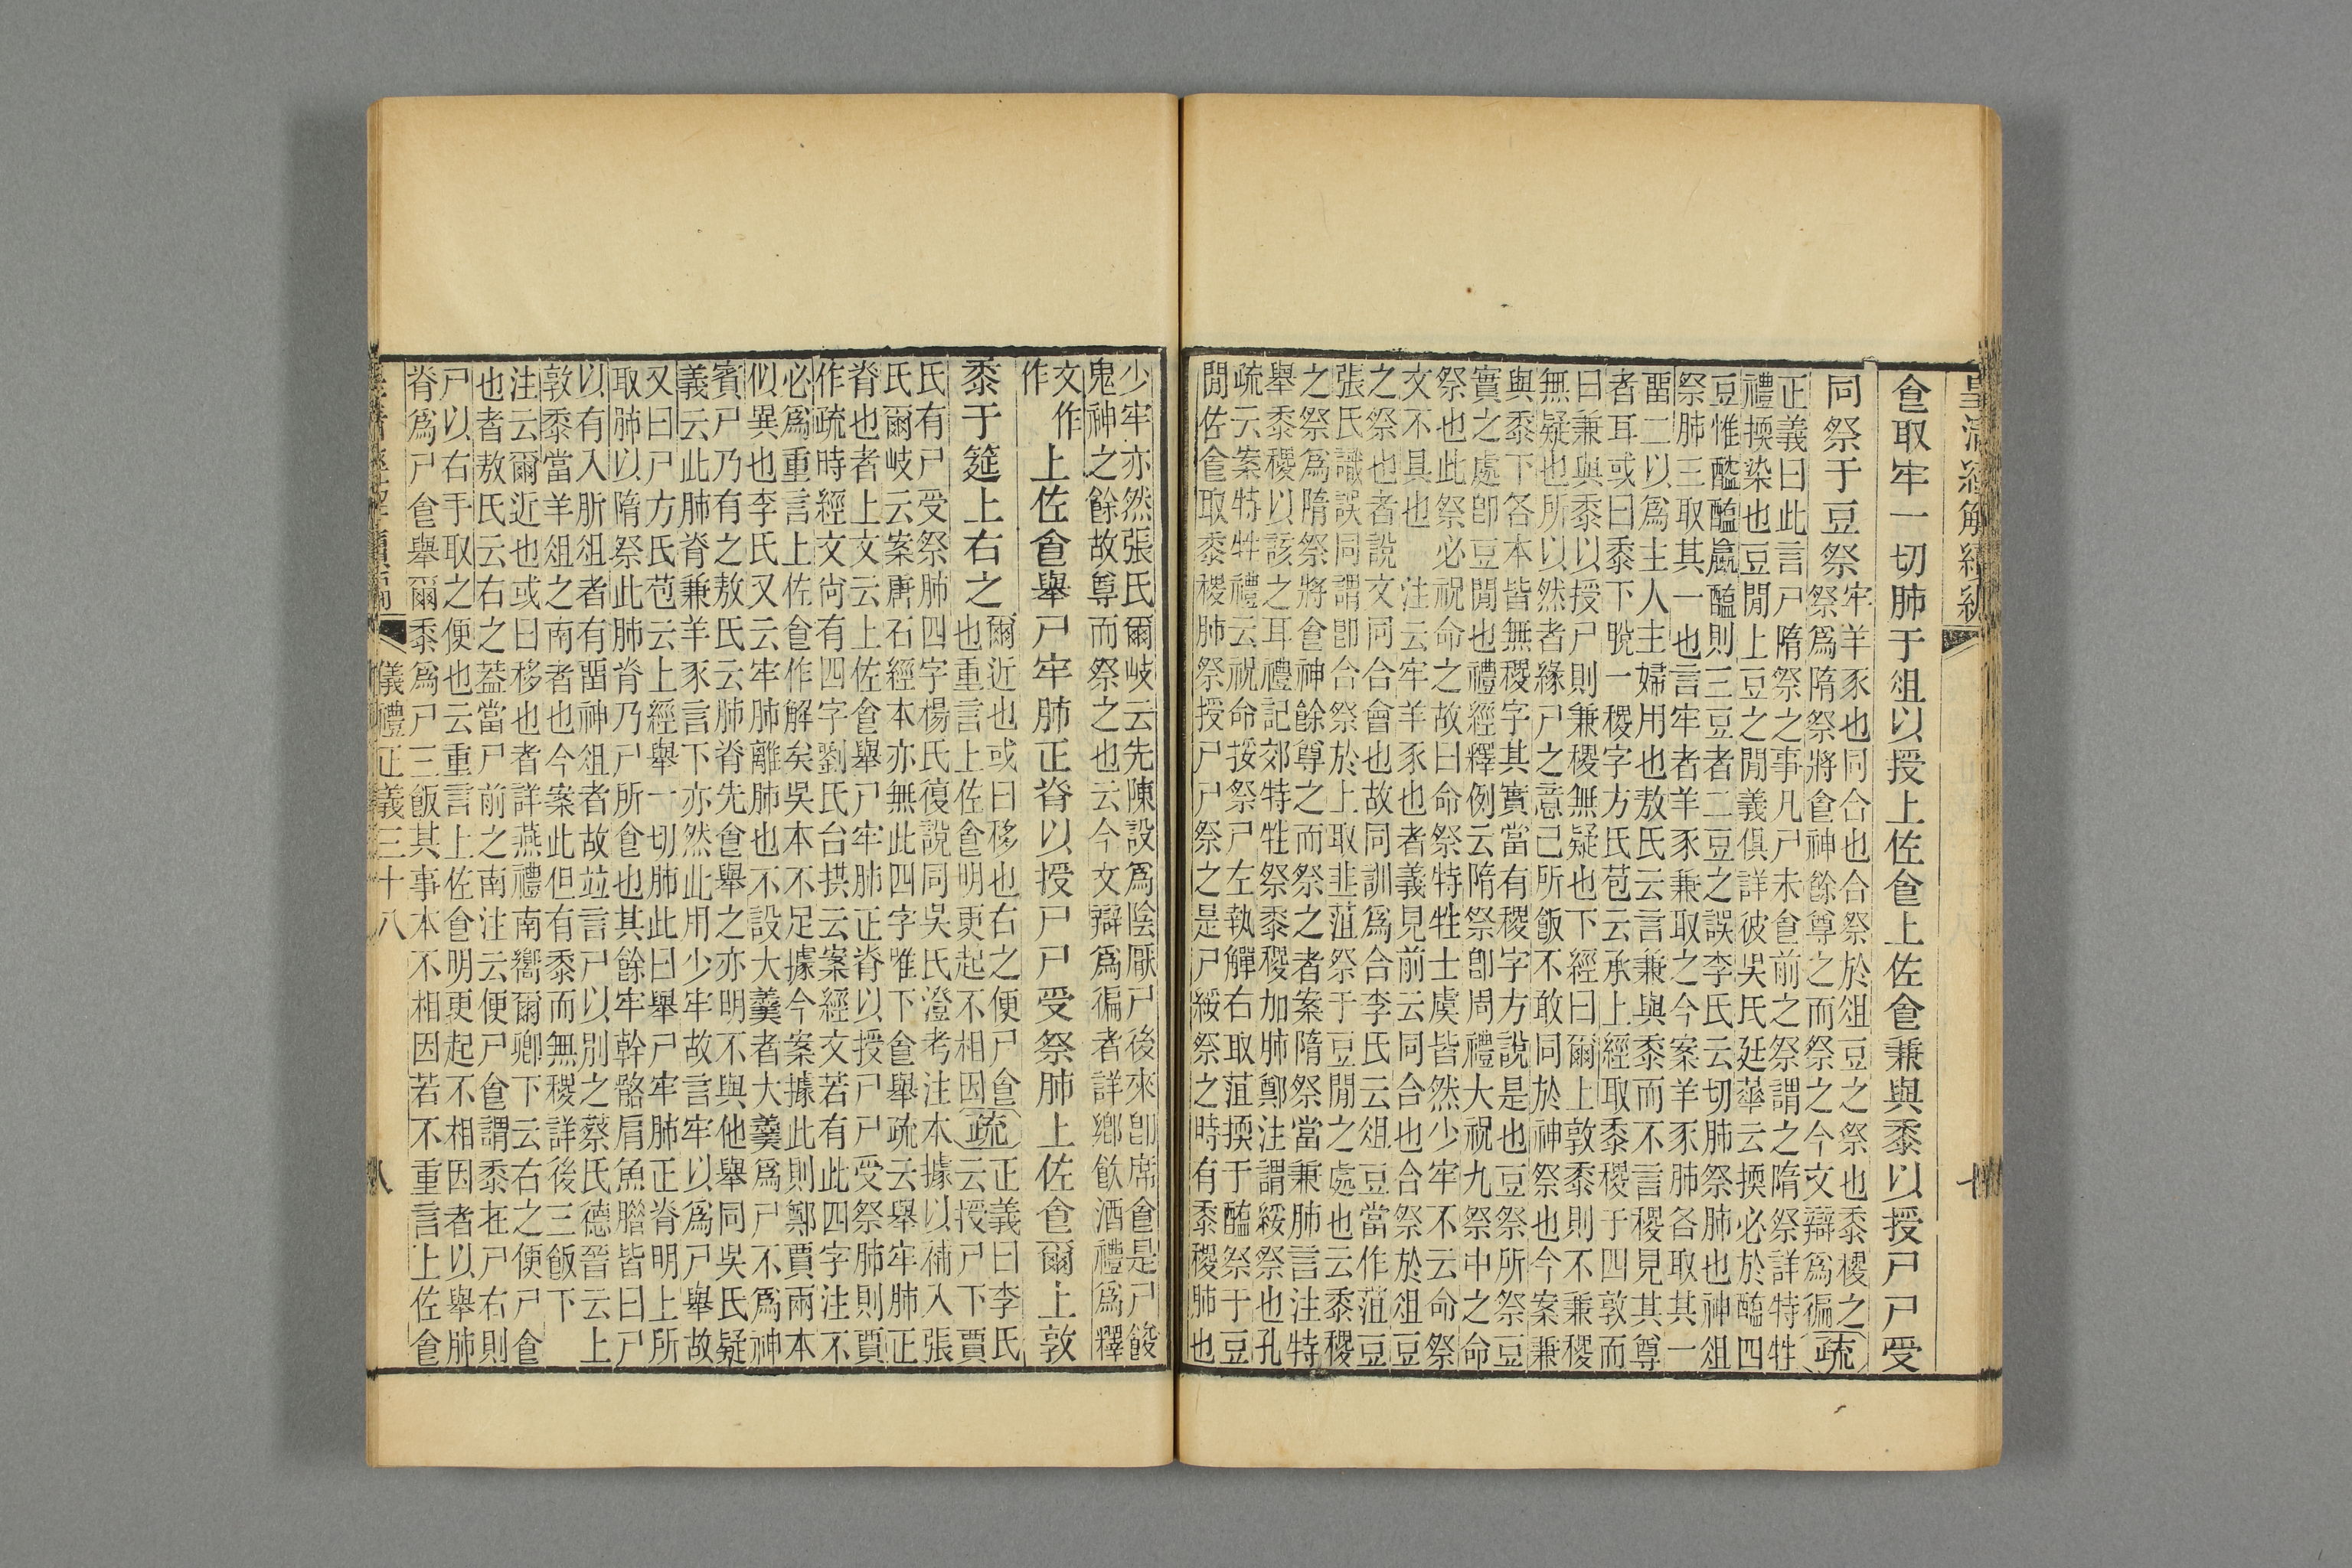 皇清經解續編
七
食取牢一切肺于俎以授上佐食上佐食兼與黍以授尸尸受
同祭于豆祭
牢羊豕也同合也合祭於俎豆之祭也黍稷之
祭爲隋祭將食神餘尊之而祭之今文辯爲徧
疏
正義曰此言尸隋祭之事凡尸未食前之祭謂之隋祭詳特牲
禮擩染也豆閒上豆之閒義俱詳彼吳氏廷華云擩必於醢四
豆惟醓醢蠃醢則三豆者二豆之誤李氏云切肺祭肺也神俎
祭肺三取其一也言牢者羊豕兼取之今案羊豕肺各取其一
畱二以爲主人主婦用也敖氏云言兼與黍而不言稷見其尊
者耳或曰黍下脫一稷字方氏苞云承上經取黍稷于四敦而
曰兼與黍以授尸則兼稷無疑也下經曰爾上敦黍則不兼稷
無疑也所以然者緣尸之意己所飯不敢同於神祭也今案兼
與黍下各本皆無稷字其實當有稷字方說是也豆祭所祭豆
實之處卽豆閒也禮經釋例云隋祭卽周禮大祝九祭中之命
祭也此祭必祝命之故曰命祭特牲士虞皆然少牢不云命祭
文不具也 注云牢羊豕也者義見前云同合也合祭於俎豆
之祭也者說文同合會也故同訓爲合李氏云俎豆當作菹豆
張氏識誤同謂卽合祭於上取韭菹祭于豆閒之處也云黍稷
之祭爲隋祭將食神餘尊之而祭之者案隋祭當兼肺言注特
舉黍稷以該之耳禮記郊特牲祭黍稷加肺鄭注謂綏祭也孔
疏云案特牲禮云祝命挼祭尸左執觶右取菹擩于醢祭于豆
閒佐食取黍稷肺祭授尸尸祭之是尸綏祭之時有黍稷肺也
少牢亦然張氏爾岐云先陳設爲陰厭尸後來卽席食是尸餕
鬼神之餘故尊而祭之也云今文辯爲徧者詳鄉飮酒禮爲釋
文作
作
上佐食舉尸牢肺正脊以授尸尸受祭肺上佐食爾上敦
黍于筵上右之
爾近也或曰移也右之便尸食
也重言上佐食明更起不相因
疏
正義曰李氏
云授尸下賈
氏有尸受祭肺四字楊氏復說同吳氏澄考注本據以補入張
氏爾岐云案唐石經本亦無此四字唯下食舉疏云舉牢肺正
脊也者上文云上佐食舉尸牢肺正脊以授尸尸受祭肺則賈
作疏時經文尙有四字劉氏台拱云案經文若有此四字注不
必爲重言上佐食作解矣吳本不足據今案據此則鄭賈兩本
似異也李氏又云牢肺離肺也不設大羹者大羹爲尸不爲神
賓尸乃有之敖氏云肺脊先食舉之亦明不與他舉同吳氏疑
義云此肺脊兼羊豕言下亦然此用少牢故言牢以爲尸舉故
又曰尸方氏苞云上經舉一切肺此曰舉尸牢肺正脊明上所
取肺以隋祭此肺脊乃尸所食也其餘牢幹骼肩魚腊皆曰尸
以有入肵俎者有畱神俎者故竝言尸以別之蔡氏德晉云上
敦黍當羊俎之南者也今案此但有黍而無稷詳後三飯下
注云爾近也或曰移也者詳燕禮南嚮爾卿下云右之便尸食
也者敖氏云右之蓋當尸前之南注云便尸食謂黍在尸右則
尸以右手取之便也云重言上佐食明更起不相因者以舉肺
脊爲尸食舉爾黍爲尸三飯其事本不相因若不重言上佐食
儀禮正義三十八
八